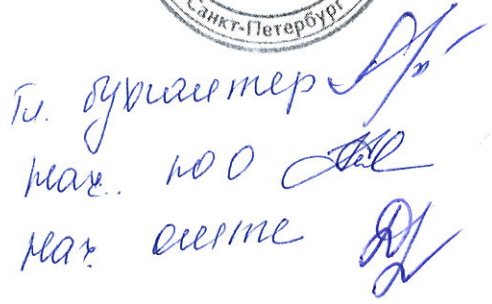 Санкт-Петербург
Гл. бухгалтер
нач. ПОО
нач.